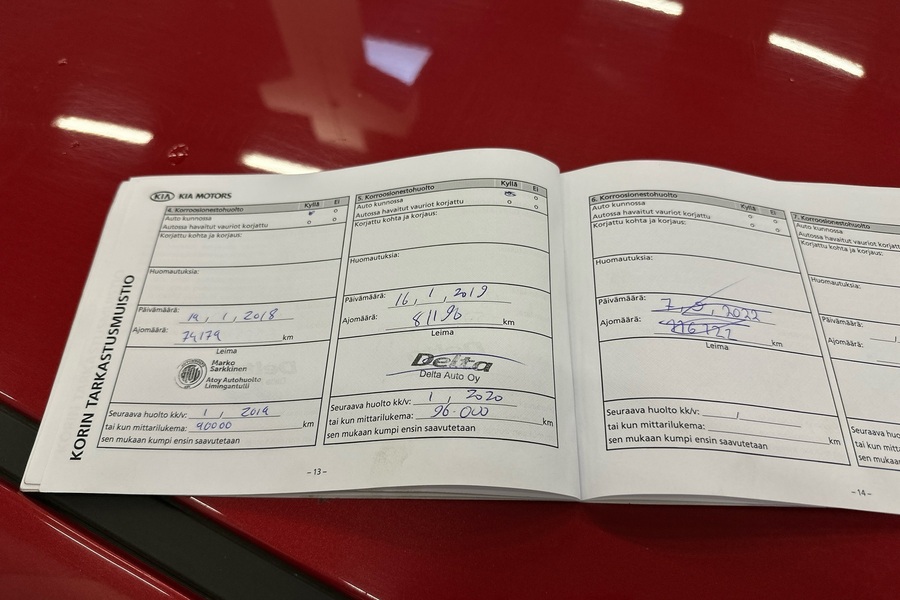 KORIN TARKASTUSMUISTIO
KIA KIA MOTORS
4. Korroosionestohuolto Kyllä Ei
Auto kunnossa
Autossa havaitut vauriot korjattu
Korjattu kohta ja korjaus:
Huomautuksia:
Päivämäärä: 19, 1, 2018
Ajomäärä: 74179 km
Leima
Marko
Sarkkinen
Atoy Autohuolto
Limingantulli
Seuraava huolto kk/v: 1, 2019
tai kun mittarilukema: 90000 km
sen mukaan kumpi ensin saavutetaan
5. Korroosionestohuolto Kyllä Ei
Auto kunnossa
Autossa havaitut vauriot korjattu
Korjattu kohta ja korjaus:
Huomautuksia:
Päivämäärä: 16, 1, 2019
Ajomäärä: 81196 km
Leima
Delta
Delta Auto Oy
Seuraava huolto kk/v: 1, 2020
tai kun mittarilukema: 96.000 km
sen mukaan kumpi ensin saavutetaan
-13-
6. Korroosionestohuolto Kyllä Ei
Auto kunnossa
Autossa havaitut vauriot korjattu
Korjattu kohta ja korjaus:
Huomautuksia:
Päivämäärä: 7, 5, 2022
Ajomäärä: km
Leima
Seuraava huolto kk/v: /
tai kun mittarilukema: km
sen mukaan kumpi ensin saavutetaan
7. Korroosionestohuolto
Auto kunnossa
Autossa havaitut vauriot
Korjattu kohta ja korjaus:
Huomautuksia:
Päivämäärä:
Ajomäärä:
Seuraava
tai kun
sen mukaan
-14-